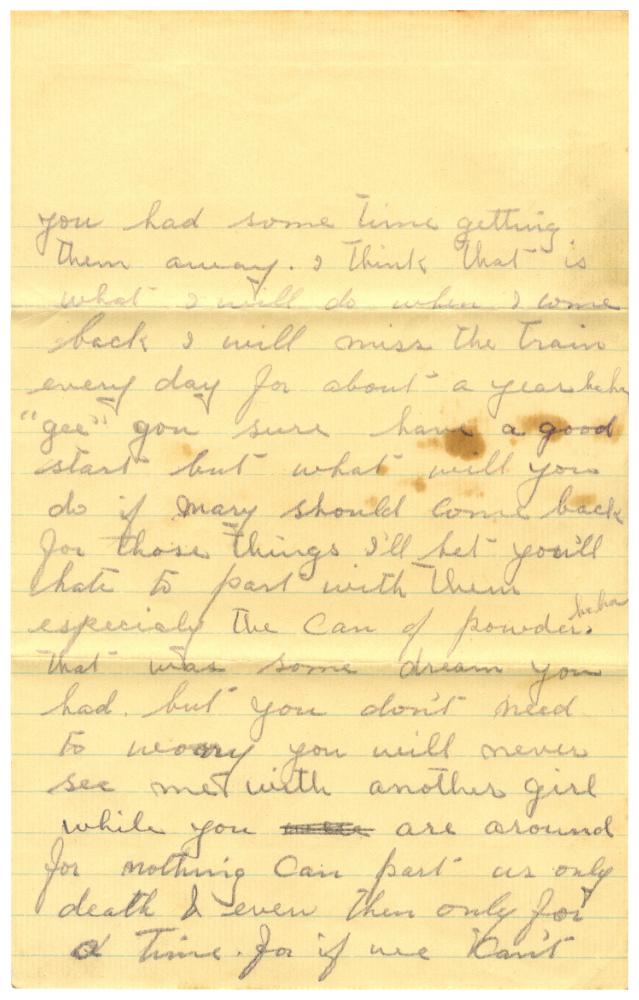 you had some time getting
them away. I think that is
what I will do when I come
back I will miss the train
every day for about a year haha
"gee" you sure have a good
start but what will you
do if Mary should come back
for those things I'll bet you'll
hate to part with them
especialy the can of powder. haha
that was some dream you
had. but you don't need
to worry you will never
see me with another girl
while you are around
for nothing can part us only
death & even then only for
a time. for if we can't